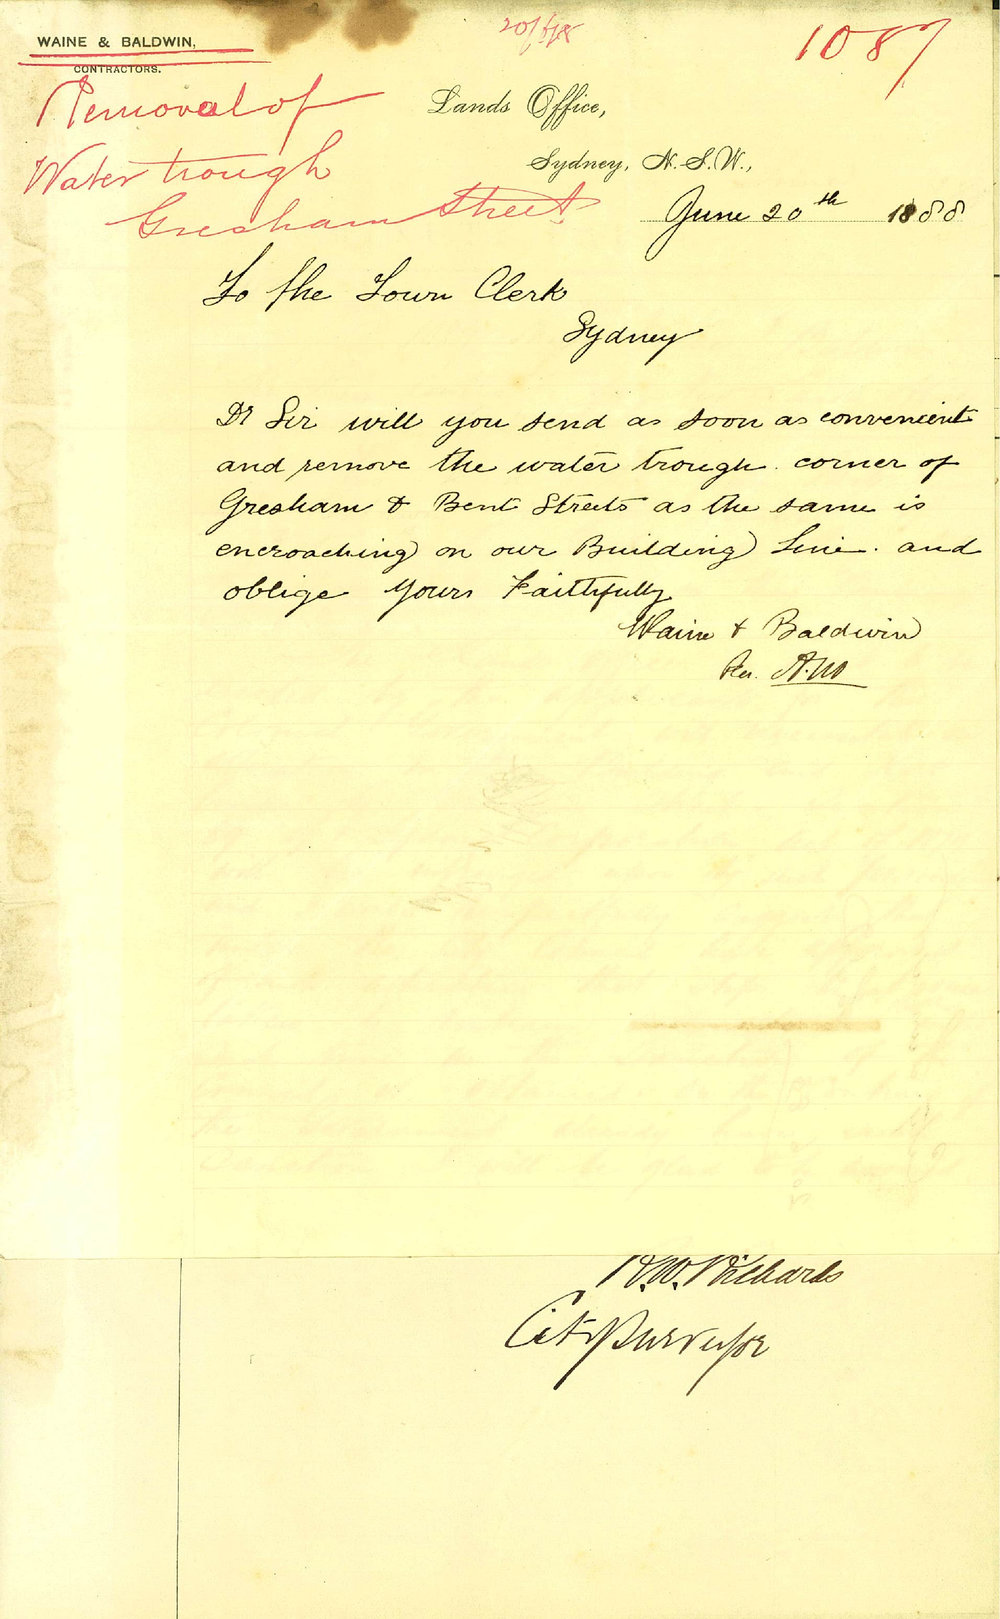 WAINE & BALDWIN,
CONTRACTORS.
20/6/88
1087
Removal of
Water trough
Gresham Street
Lands Office,
Sydney, N.S.W.,
June 20th 1888
To the Town Clerk
Sydney
Dr Sir will you send as soon as convenient
and remove the water trough. corner of
Gresham & Bent Streets as the same is
encroaching on our Building Line. and
oblige Yours Faithfully
Waine & Baldwin
Per.
Richards
City Surveyor